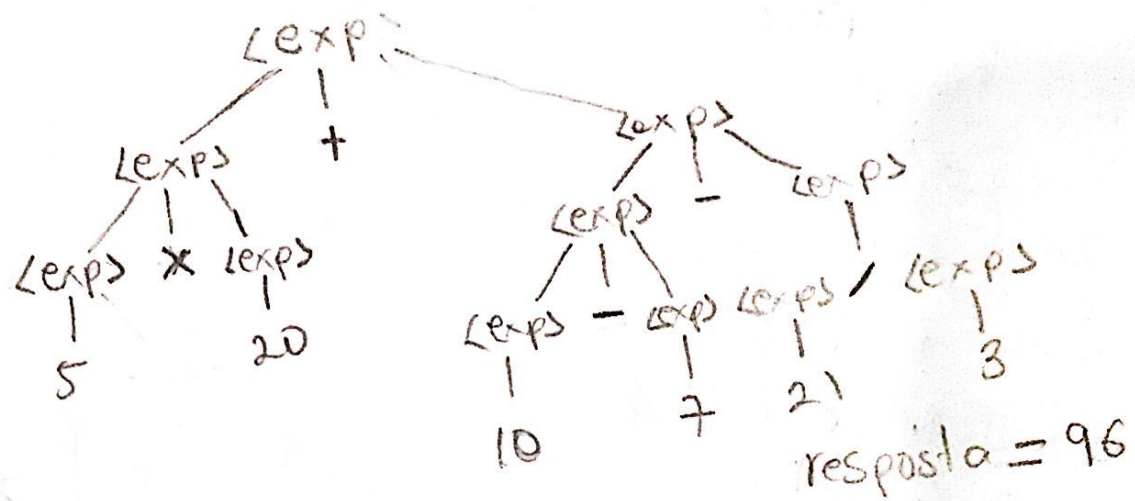 <exp>
+
<exp> <exp> - <exp>
<exp> × <exp> <exp> - <exp> <exp> / <exp>
5 20 10 7 21 3
resposta = 96